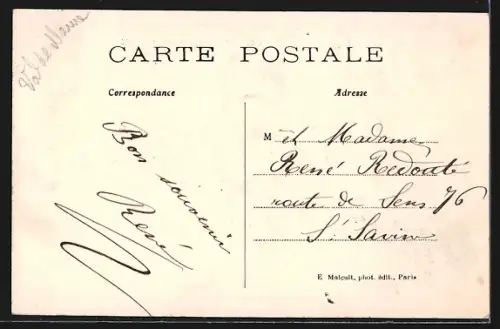 Val de Marne
CARTE POSTALE
Correspondance
Adresse
Bon souvenir
René
M et Madame
René Redouté
route de Sens 76
St Savin
E Malcuit, phot. édit., Paris